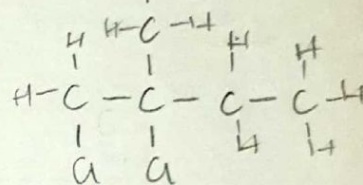 H H-C-H H H
H-C-C-C-C-H
Cl Cl H H